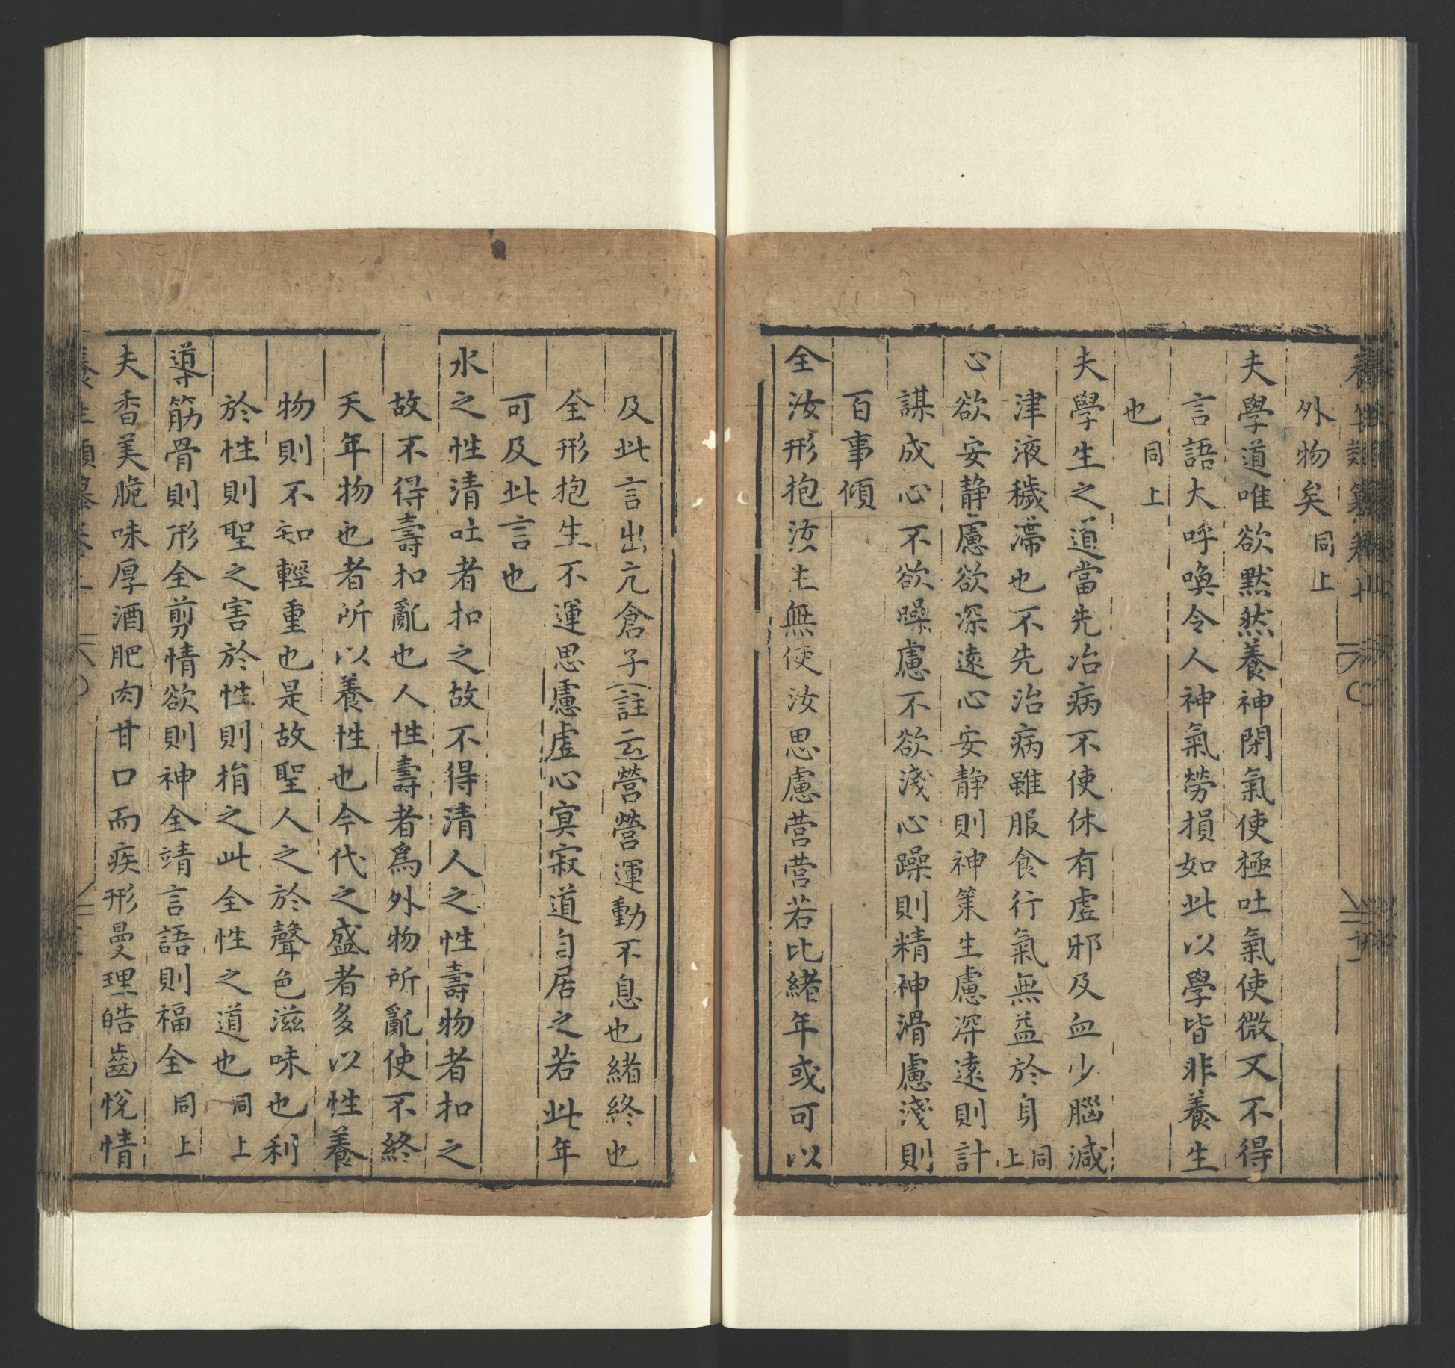 外物矣同上
夫學道唯欲默然養神閉氣使極吐氣使微又不得
言語大呼喚令人神氣勞損如此以學皆非養生
也同上
夫學生之道當先治病不使休有虛邪及血少腦減
津液穢滯也不先治病雖服食行氣無益於身同上
心欲安静慮欲深遠心安静則神策生慮深遠則計
謀成心不欲躁慮不欲淺心躁則精神滑慮淺則
百事傾
全汝形抱汝生無使汝思慮营营若比緒年或可以
及此言出亢倉子註云營營運動不息也緒終也
全形抱生不運思慮虛心寞寂道自居之若此年
可及此言也
水之性清吐者扣之故不得清人之性壽物者扣之
故不得壽扣亂也人性壽者爲外物所亂使不終
天年物也者所以養性也今代之盛者多以性養
物則不知輕重也是故聖人之於聲色滋味也利
於性則聖之害於性則捐之此全性之道也同上
導筋骨則形全剪情欲則神全靖言語則福全同上
夫香美脆味厚酒肥肉甘口而疾形曼理皓齒悅情